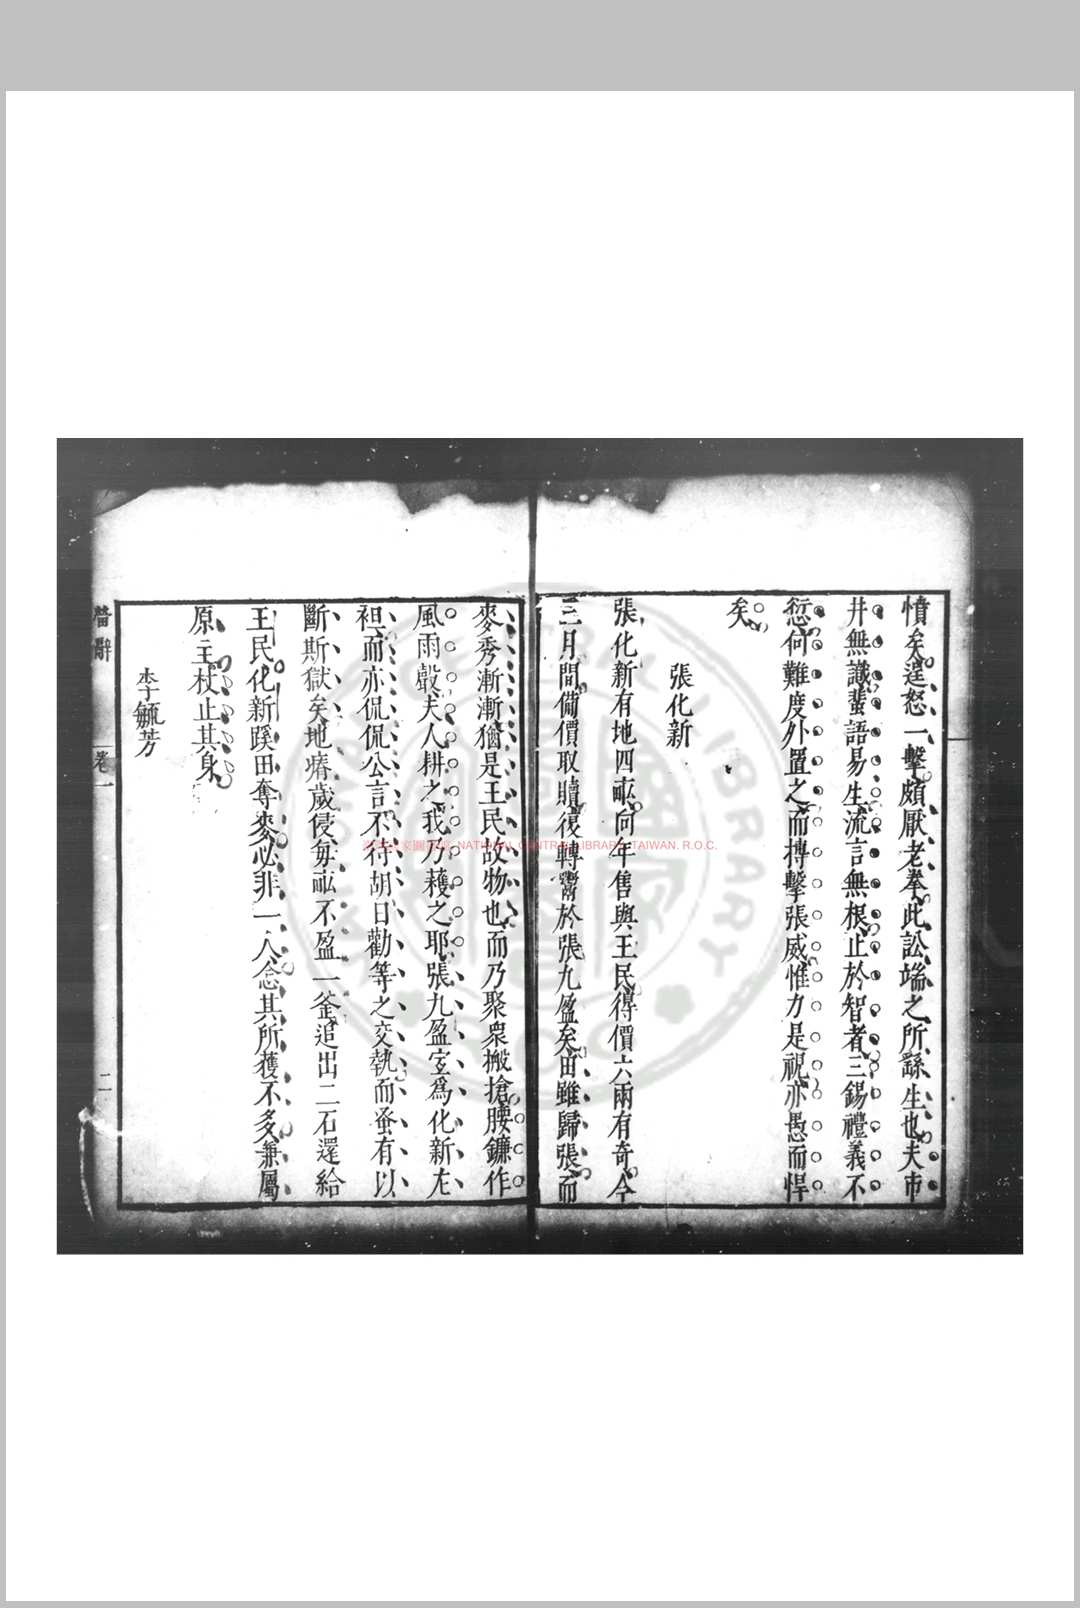 憤矣逞怒一擊頗厭老拳此訟端之所繇生也夫市
井無識蜚語易生流言無根止於智者三錫禮義不
愆何難度外置之而摶擊張威惟力是視亦愚而悍
矣
張化新
張化新有地四畝向年售與王民得價六兩有奇今
三月間備價取贖復轉鬻於張九盈矣田雖歸張而
麥秀漸漸猶是王民故物也而乃聚衆搬搶腰鐮作
風雨聲夫人耕之我乃穫之耶張九盈寔爲化新左
袒而亦侃侃公言不待胡日勸等之交執而蚤有以
斷斯獄矣地瘠歲侵每畝不盈一釜追出二石還給
王民化新蹊田奪麥必非一人念其所獲不多兼屬
原主杖止其身
李毓芳
䜿辭
卷一
二
NATIONAL CENTRAL LIBRARY, TAIWAN. R.O.C.